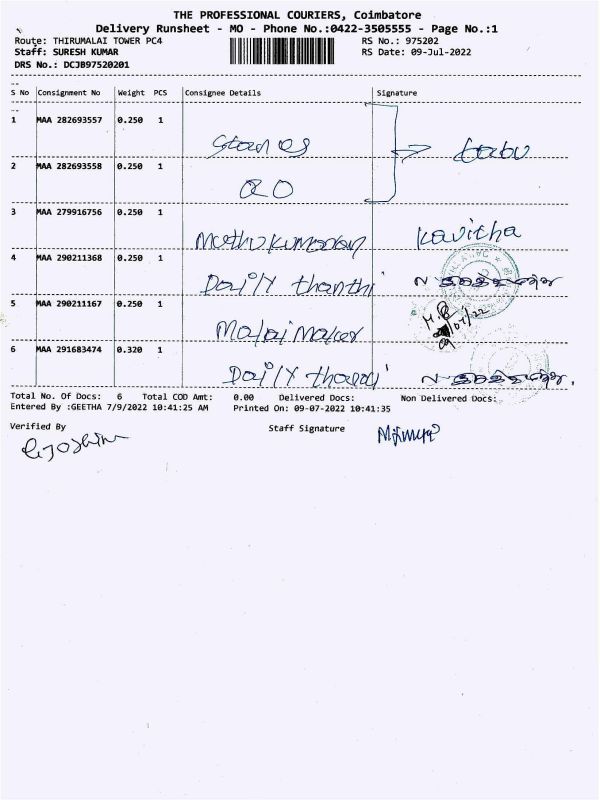 THE PROFESSIONAL COURIERS, Coimbatore
Delivery Runsheet - MO - Phone No.:0422-3505555 - Page No.:1
Route: THIRUMALAI TOWER PC4 RS No.: 975202
Staff: SURESH KUMAR RS Date: 09-Jul-2022
DRS No.: DCJB97520201
S No Consignment No Weight PCS Consignee Details Signature
1 MAA 282693557 0.250 1 Stanes babu
2 MAA 282693558 0.250 1 RO
3 MAA 279916756 0.250 1 Muthukumaran Kavitha
4 MAA 290211368 0.250 1 Daily thanthi
5 MAA 290211167 0.250 1 Malai Malar
6 MAA 291683474 0.320 1 Daily thanthi
Total No. Of Docs: 6 Total COD Amt: 0.00 Delivered Docs: Non Delivered Docs:
Entered By :GEETHA 7/9/2022 10:41:25 AM Printed On: 09-07-2022 10:41:35
Verified By Staff Signature